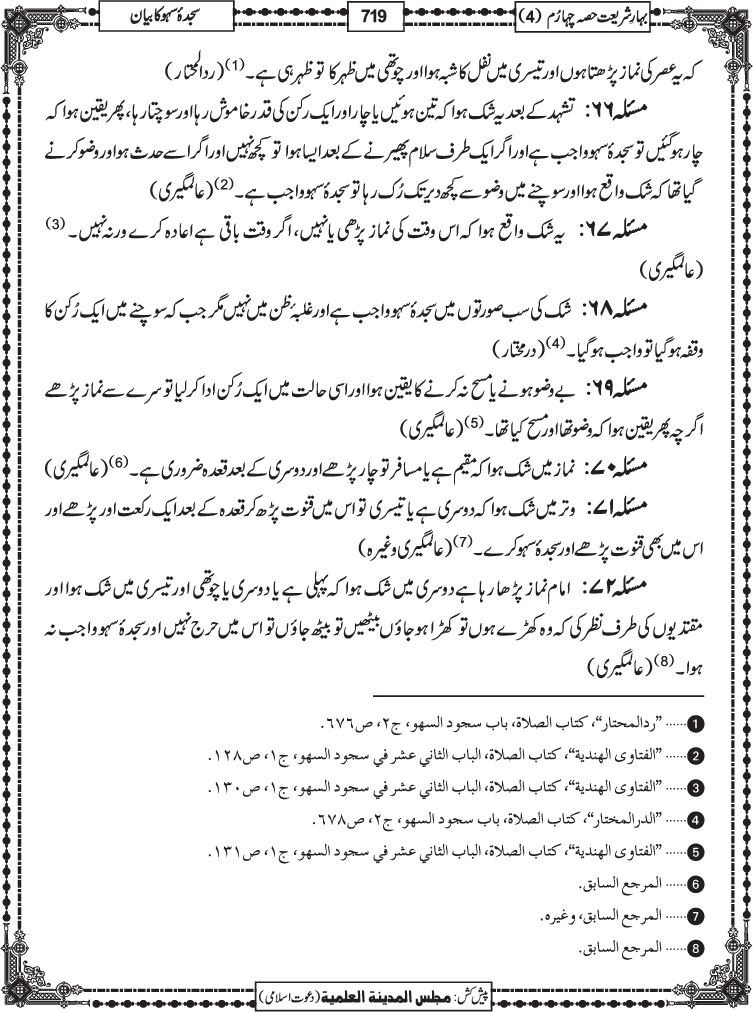 بہارِ شریعت حصہ چہارم (4)
719
سجدۂ سہو کا بیان
کہ یہ عصر کی نماز پڑھتا ہوں اور تیسری میں نفل کا شبہ ہوا اور چوتھی میں ظہر کا تو ظہر ہی ہے۔(1) (ردالمحتار)
مسئلہ ۶۶: تشہد کے بعد یہ شک ہوا کہ تین ہوئیں یا چار اور ایک رکن کی قدر خاموش رہا اور سوچتا رہا، پھر یقین ہوا کہ
چار ہو گئیں تو سجدۂ سہو واجب ہے اور اگر ایک طرف سلام پھیرنے کے بعد ایسا ہوا تو کچھ نہیں اور اگر اسے حدث ہوا اور وضو کرنے
گیا تھا کہ شک واقع ہوا اور سوچنے میں وضو سے کچھ دیر تک رُک رہا تو سجدۂ سہو واجب ہے۔(2) (عالمگیری)
مسئلہ ۶۷: یہ شک واقع ہوا کہ اس وقت کی نماز پڑھی یا نہیں، اگر وقت باقی ہے اعادہ کرے ورنہ نہیں۔(3)
(عالمگیری)
مسئلہ ۶۸: شک کی سب صورتوں میں سجدۂ سہو واجب ہے اور غلبۂ ظن میں نہیں مگر جب کہ سوچنے میں ایک رُکن کا
وقفہ ہو گیا تو واجب ہو گیا۔(4) (درمختار)
مسئلہ ۶۹: بے وضو ہونے یا مسح نہ کرنے کا یقین ہوا اور اسی حالت میں ایک رُکن ادا کر لیا تو سرے سے نماز پڑھے
اگرچہ پھر یقین ہوا کہ وضو تھا اور مسح کیا تھا۔(5) (عالمگیری)
مسئلہ ۷۰: نماز میں شک ہوا کہ مقیم ہے یا مسافر تو چار پڑھے اور دوسری کے بعد قعدہ ضروری ہے۔(6) (عالمگیری)
مسئلہ ۷۱: وتر میں شک ہوا کہ دوسری ہے یا تیسری تو اس میں قنوت پڑھ کر قعدہ کے بعد ایک رکعت اور پڑھے اور
اس میں بھی قنوت پڑھے اور سجدۂ سہو کرے۔(7) (عالمگیری وغیرہ)
مسئلہ ۷۲: امام نماز پڑھا رہا ہے دوسری میں شک ہوا کہ پہلی ہے یا دوسری یا چوتھی اور تیسری میں شک ہوا اور
مقتدیوں کی طرف نظر کی کہ وہ کھڑے ہوں تو کھڑا ہو جاؤں بیٹھیں تو بیٹھ جاؤں تو اس میں حرج نہیں اور سجدۂ سہو واجب نہ
ہوا۔(8) (عالمگیری)
1 ...... "ردالمحتار"، كتاب الصلاة، باب سجود السهو، ج۲، ص۶۷۶.
2 ...... "الفتاوى الهندية"، كتاب الصلاة، الباب الثاني عشر في سجود السهو، ج۱، ص۱۲۸.
3 ...... "الفتاوى الهندية"، كتاب الصلاة، الباب الثاني عشر في سجود السهو، ج۱، ص۱۳۰.
4 ...... "الدرالمختار"، كتاب الصلاة، باب سجود السهو، ج۲، ص۶۷۸.
5 ...... "الفتاوى الهندية"، كتاب الصلاة، الباب الثاني عشر في سجود السهو، ج۱، ص۱۳۱.
6 ...... المرجع السابق.
7 ...... المرجع السابق، وغيره.
8 ...... المرجع السابق.
پیش کش: مجلس المدینۃ العلمیۃ (دعوتِ اسلامی)